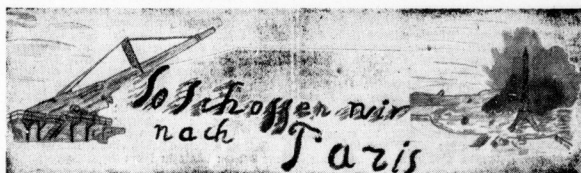 So schossen wir
nach
Paris